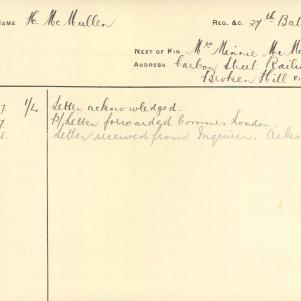 NAME H. McMullen REG. &C. 27th Bal
NEXT OF KIN Mrs Minnie McM
ADDRESS Carbon Street Railw
Broken Hill
7. 1/4 Letter acknowledged.
7 P/Letter forwarded Commrs London.
8. Letter received from Inquirer. Ackn